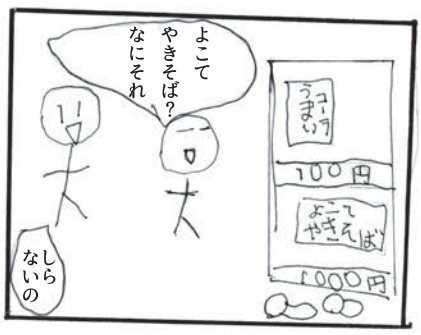 よこて
やきそば？
なにそれ
しら
ないの
コーラ
うまい
100円
よこて
やきそば
1000円